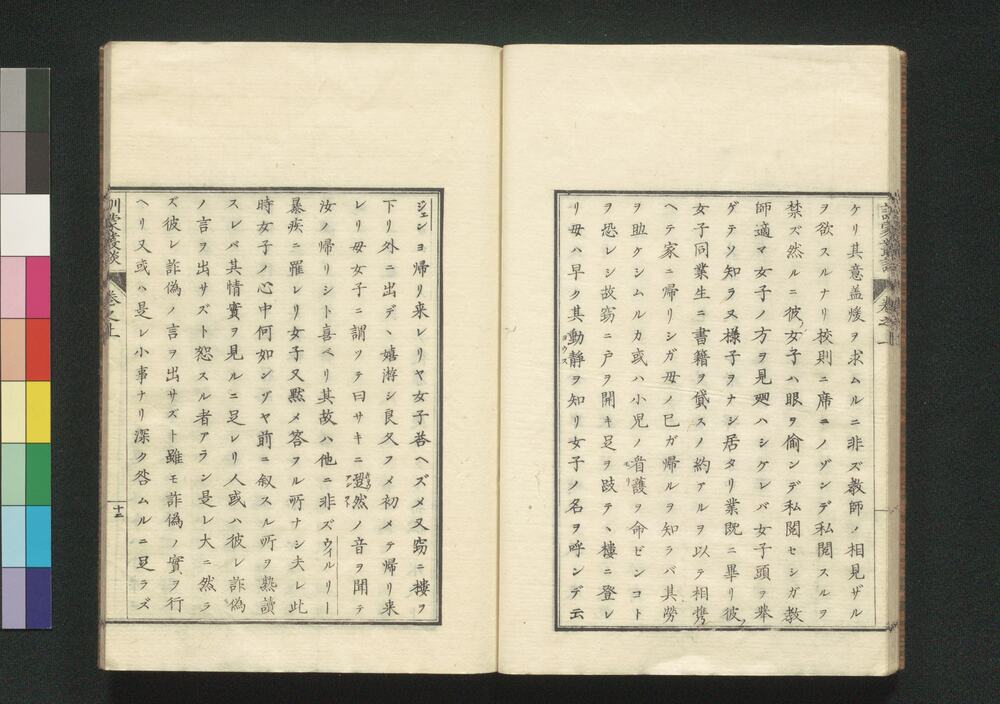 ケリ其意盖煖ヲ求ムルニ非ズ教師ノ相見ザル
ヲ欲スルナリ校則ニ席ニノゾンデ私閲スルヲ
禁ズ然ルニ彼女子ハ眼ヲ偷ンデ私閲セシガ教
師適マ女子ノ方ヲ見廻ハシケレバ女子頭ヲ挙
ゲテソ知ラヌ様子ヲナシ居タリ業既ニ畢リ彼ノ
女子同業生ニ書籍ヲ貸スノ約アルヲ以テ相携
ヘテ家ニ帰リシガ母ノ已ガ帰ルヲ知ラバ其勞
ヲ助ケシムルカ或ハ小児ノ看護ヲ命ゼンコト
ヲ恐レシ故窃ニ戸ヲ開キ足ヲ跂テ、樓ニ登レ
リ母ハ早ク其動静ヲ知リ女子ノ名ヲ呼ンデ云
ヨウス
訓蒙叢談 巻之上
ジェンヨ帰リ来レリヤ女子荅ヘズメ又窃ニ樓ヲ
下リ外ニ出デ、嬉游シ良久フメ初メテ帰リ来
レリ母女子ニ謂ツテ曰サキニ跫然ノ音ヲ聞テ
汝ノ帰リシト喜ベリ其故ハ他ニ非ズウイルリー
暴疾ニ罹レリ女子又黙メ答フル所ナシ夫レ此
時女子ノ心中何如ンゾヤ前ニ叙スル所ヲ熟讀
スレバ其情實ヲ見ルニ足レリ人或ハ彼レ詐偽
ノ言ヲ出サズト恕スル者アラン是レ大ニ然ラ
ズ彼レ詐偽ノ言ヲ出サズト雖モ詐偽ノ實ヲ行
ヘリ又或ハ是レ小事ナリ深ク咎ムルニ足ラズ
訓蒙叢談 巻之上
十二